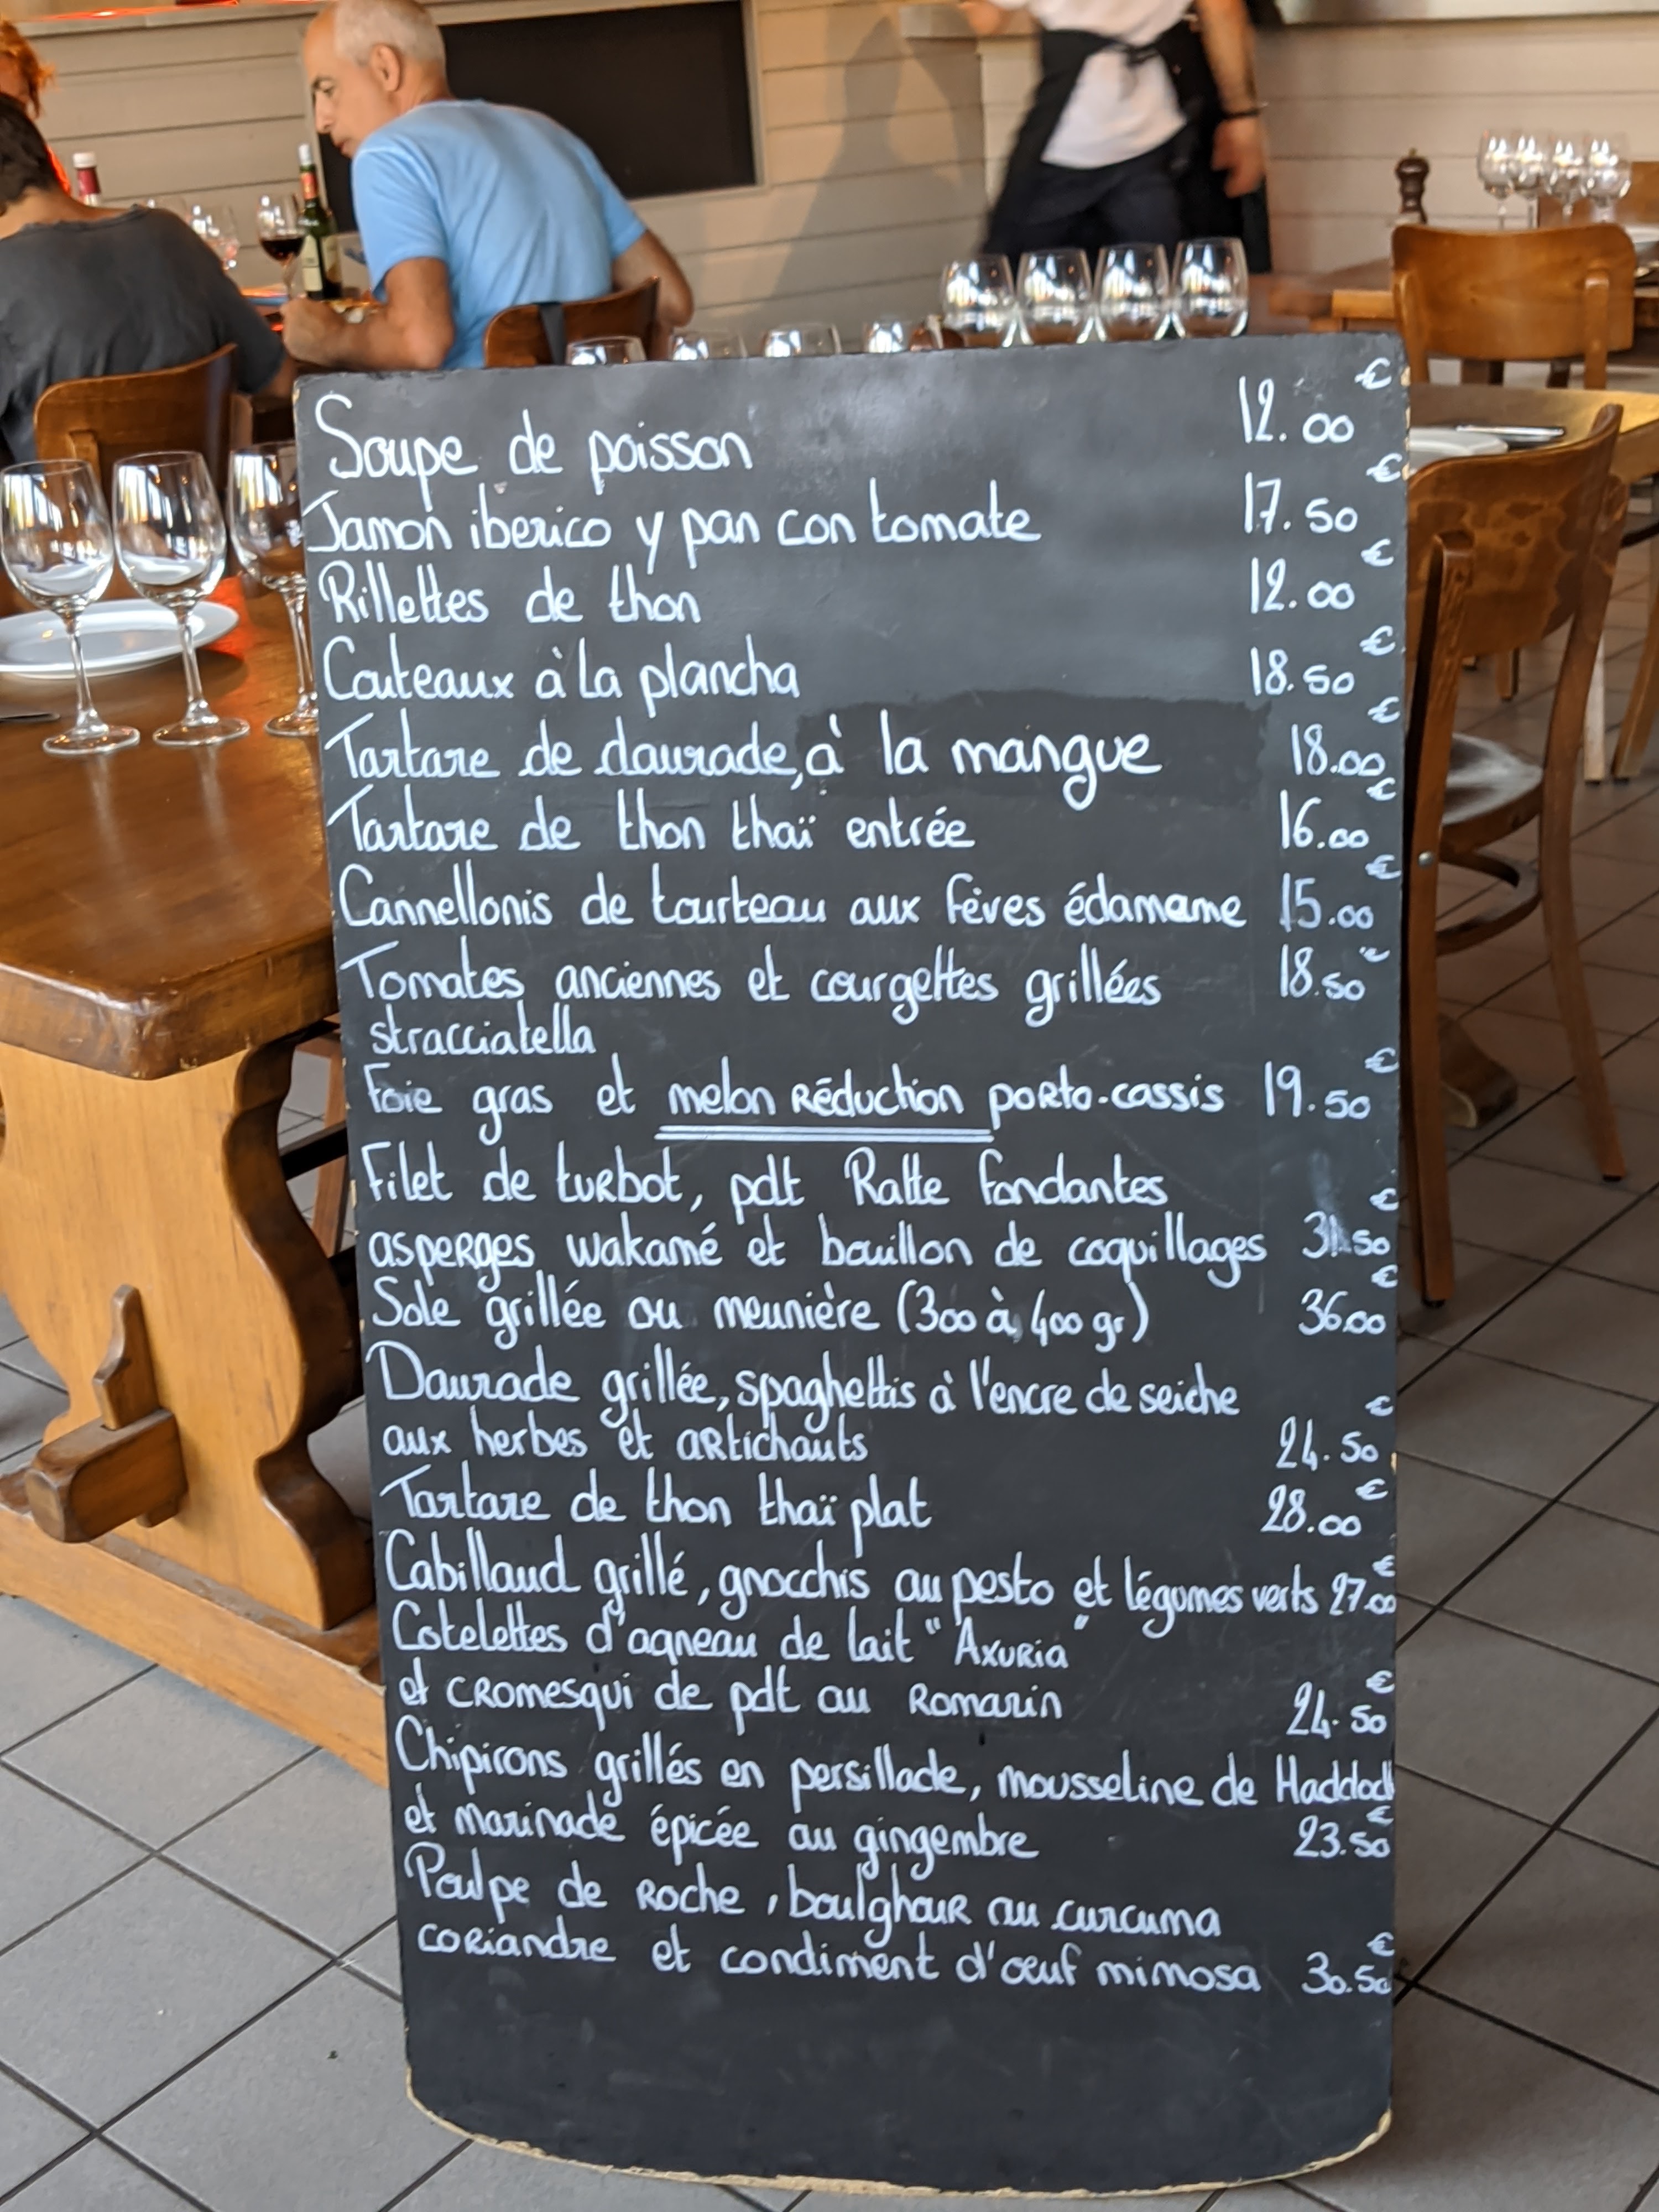 Soupe de poisson 12.00€
Jamon iberico y pan con tomate 17.50€
Rillettes de thon 12.00€
Couteaux à la plancha 18.50€
Tartare de daurade, à la mangue 18.00€
Tartare de thon thaï entrée 16.00€
Cannellonis de tourteau aux fèves édamame 15.00€
Tomates anciennes et courgettes grillées 18.50€
stracciatella
Foie gras et melon Réduction porto-cassis 19.50€
Filet de turbot, pdt Ratte fondantes
asperges wakamé et bouillon de coquillages 31.50€
Sole grillée ou meunière (300 à 400 gr) 36.00€
Daurade grillée, spaghettis à l'encre de seiche
aux herbes et artichauts 24.50€
Tartare de thon thaï plat 28.00€
Cabillaud grillé, gnocchis au pesto et légumes verts 27.00€
Cotelettes d'agneau de lait "Axuria"
et cromesqui de pdt au Romarin 24.50€
Chipirons grillés en persillade, mousseline de Haddock
et marinade épicée au gingembre 23.50€
Poulpe de Roche, boulghour au curcuma
coriandre et condiment d'œuf mimosa 30.50€